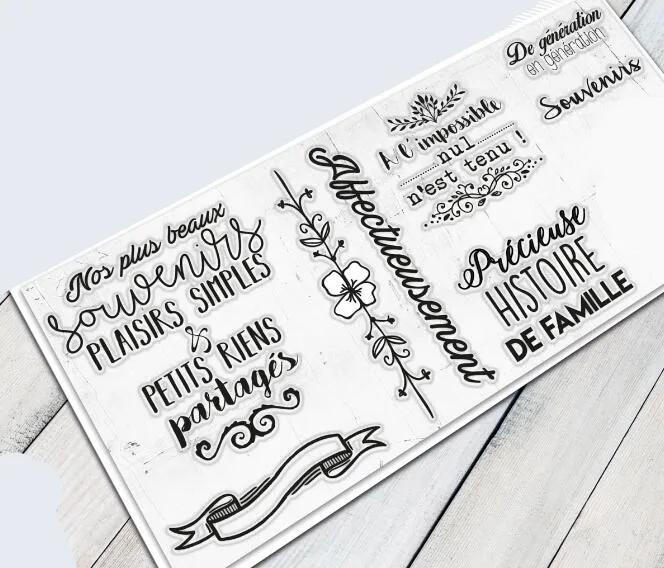 Nos plus beaux
souvenirs
PLAISIRS SIMPLES
&
PETITS RIENS
partagés
Affectueusement
A l'impossible
nul
n'est tenu !
De génération
en génération
Souvenirs
Précieuse
HISTOIRE
DE FAMILLE